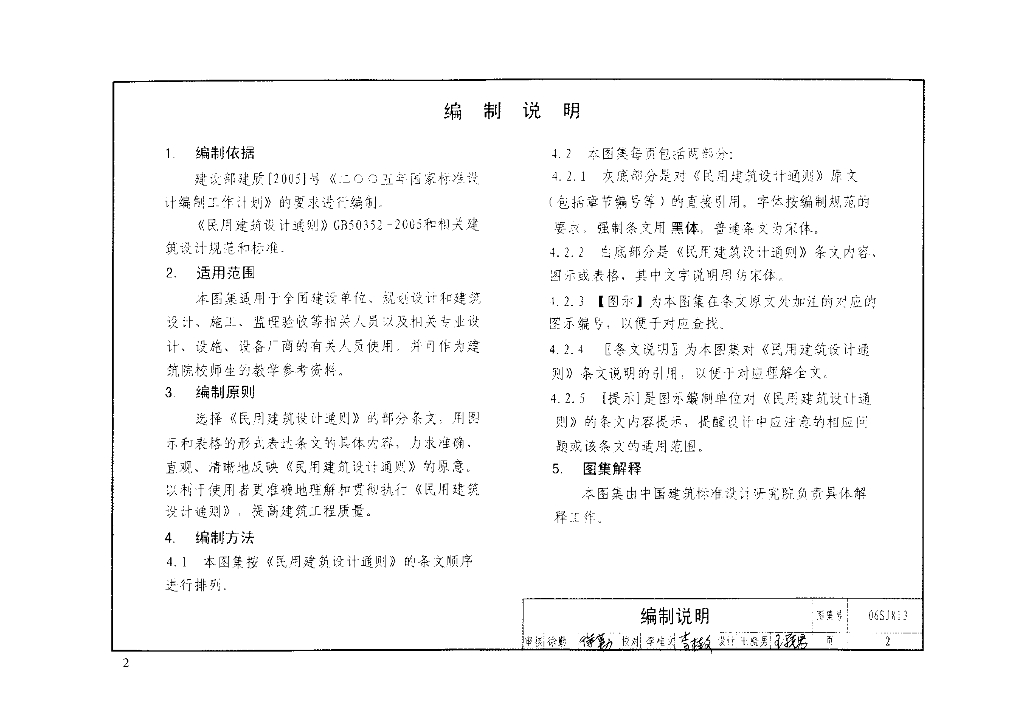 编 制 说 明
1. 编制依据
建设部建质[2005]号《二〇〇五年国家标准设
计编制工作计划》的要求进行编制。
《民用建筑设计通则》GB50352-2005和相关建
筑设计规范和标准.
2. 适用范围
本图集适用于全国建设单位、规划设计和建筑
设计、施工、监理验收等相关人员以及相关专业设
计、设施、设备厂商的有关人员使用，并可作为建
筑院校师生的教学参考资料。
3. 编制原则
选择《民用建筑设计通则》的部分条文，用图
示和表格的形式表达条文的具体内容，力求准确、
直观、清晰地反映《民用建筑设计通则》的原意。
以利于使用者更准确地理解和贯彻执行《民用建筑
设计通则》，提高建筑工程质量。
4. 编制方法
4.1 本图集按《民用建筑设计通则》的条文顺序
进行排列.
4.2 本图集每页包括两部分:
4.2.1 灰底部分是对《民用建筑设计通则》原文
(包括章节编号等)的直接引用，字体按编制规范的
要求，强制条文用 黑体，普通条文为宋体。
4.2.2 白底部分是《民用建筑设计通则》条文内容、
图示或表格，其中文字说明用仿宋体。
4.2.3 【图示】为本图集在条文原文外加注的对应的
图示编号，以便于对应查找。
4.2.4 〖条文说明〗为本图集对《民用建筑设计通
则》条文说明的引用，以便于对应理解全文。
4.2.5 [提示]是图示编制单位对《民用建筑设计通
则》的条文内容提示，提醒设计中应注意的相应问
题或该条文的适用范围。
5. 图集解释
本图集由中国建筑标准设计研究院负责具体解
释工作。
编制说明 图集号 06SJ813
审核 校对 设计 页 2
2